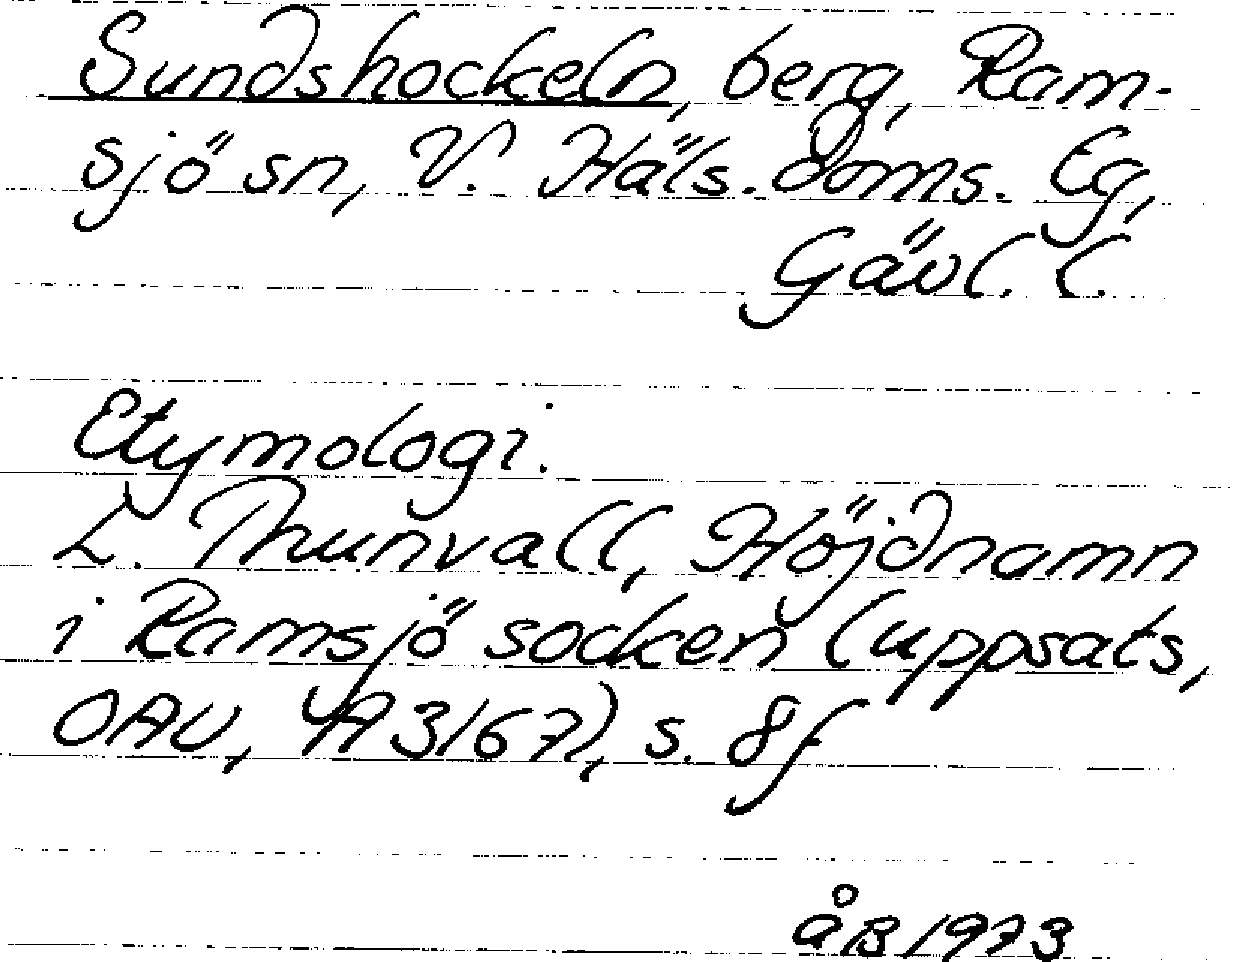 Sundshockeln, berg, Ram-
sjö sn, V. Häls. doms. Eg,
Gävl. l.
Etymologi.
L. Thunvall, Höjdnamn
i Ramsjö socken (uppsats,
OAU, 4A3167), s. 8f
åB 1973